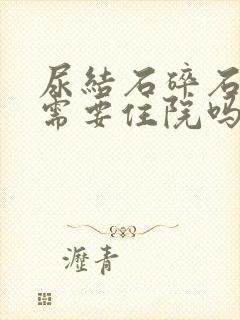 尿結石碎石
需要住院吗
瀝青